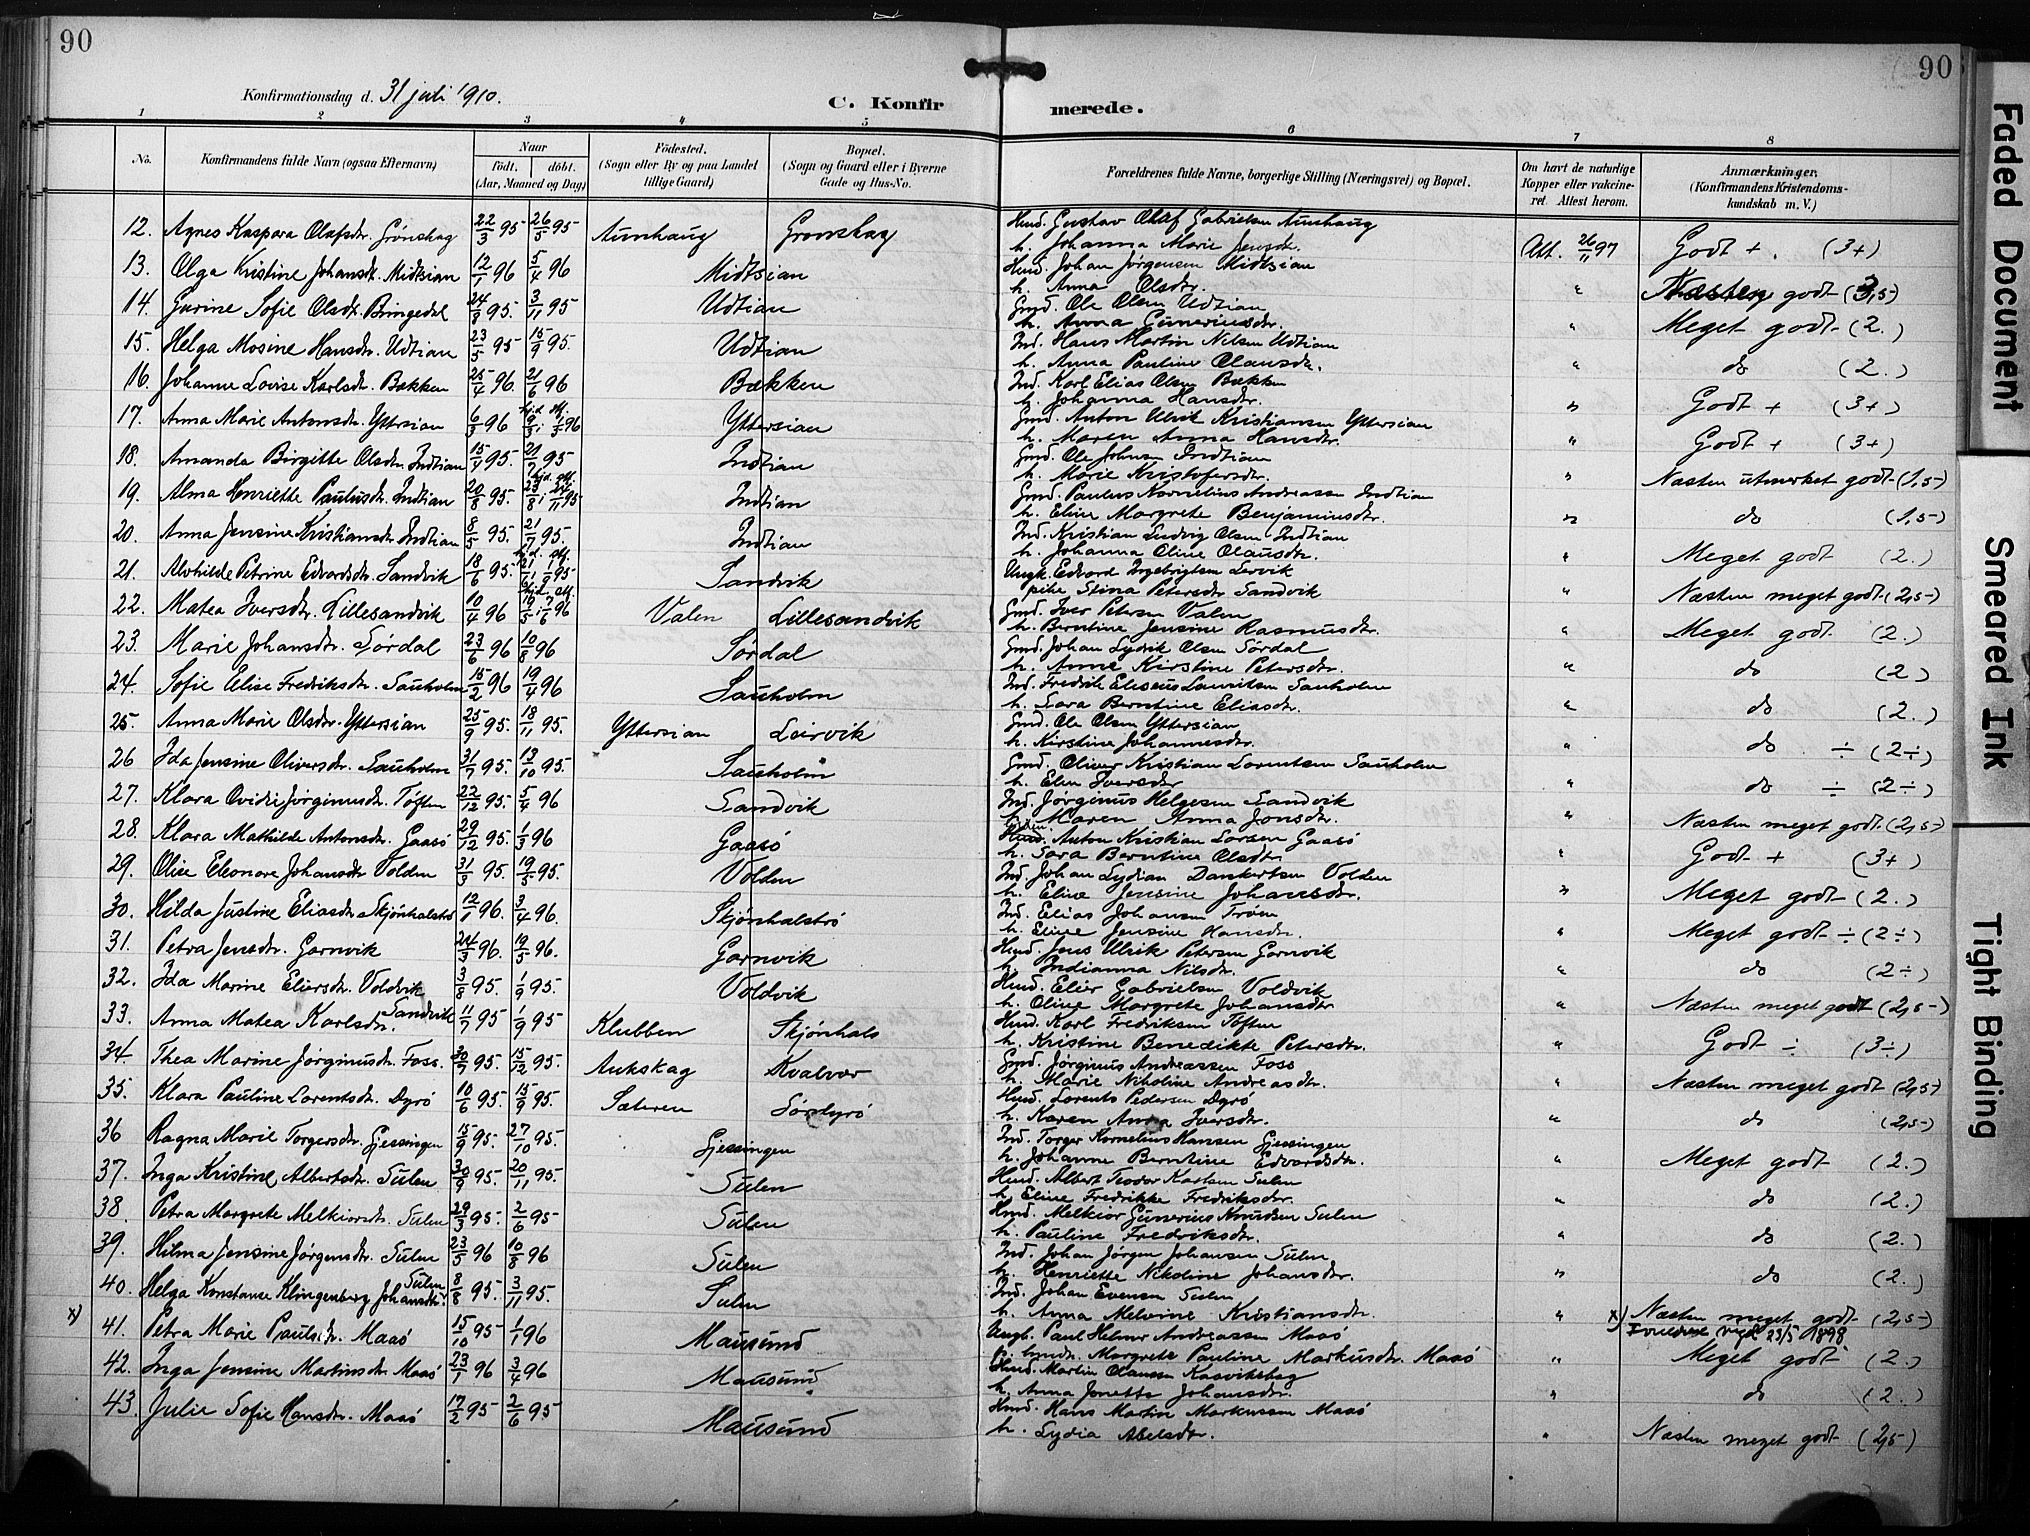 90
90
Konfirmationsdag d. 31 juli 1910.
C. Konfir merede.
1 2 3 4 5 6 7 8
No. Konfirmandens fulde Navn (ogsaa Efternavn) Naar født. døbt. (Aar, Maaned og Dag) Fødested. (Sogn eller By og paa Landet tillige Gaard) Bopæl. (Sogn og Gaard eller i Byerne Gade og Hus-No. Forældrenes fulde Navne, borgerlige Stilling (Næringsvei) og Bopæl. Om havt de naturlige Kopper eller vakcineret. Attest herom. Anmærkninger. (Konfirmandens Kristendomskundskab m. V.)
12. Agnes Kaspara Olafsdr. Grönskag 22/3 95 26/5 95 Aunhaug Grønskag Husd. Gustav Olaf Gabrielsen Aunhaug
h. Johanna Marie Jensdr. Att. 26/11 97 Godt +. (3+)
13. Olga Kristine Johansdt. Midtsian 12/1 96 5/4 96 Midtsian Husd. Johan Jørgensen Midtsian
h. Anna Olsdr. " Næsten godt (3,5)
14. Gurine Sofie Olsdt. Bringedal 24/8 95. 3/11 95 Udtian Gmd. Ole Olsen Udtian
h. Anna Guneriusdr. " Meget godt (2.)
15. Helga Mosine Hansdtr. Udtian 23/5 95 15/9 95. Udtian Ind. Hans Martin Nilsen Udtian
h. Anna Pauline Olausdr. " do (2.)
16. Johanne Lovise Karlsdt. Bækken 25/4 96. 21/6 96 Bækken Ind. Karl Elias Olsen Bækken
h. Johanna Hansdr. " Godt + (3+)
17. Anna Marie Antonsdr. Yttersian 6/3 96 hjd. stf. 9/3 i 1/3 96 Yttersian Gmd. Anton Ulrik Kristiansen Yttersian
h. Maren Anna Hansdtr. " Godt + (3+)
18. Amanda Birgitte Olsdtr. Indtian 15/4 95. 21/7 95 Indtian Gmd. Ole Johnsen Indtian
h. Marie Kristofersdtr. " Næsten utmerket godt (1,5)
19. Alma Henriette Paulusdr. Indtian 20/8 95. hjd. stf. 23/8 i 95 Indtian Gmd. Paulus Kornelius Andreassen Indtian
h. Eline Margrete Benjaminsdtr. " do (1,5)
20. Anna Jensine Kristiansdtr Indtian 8/5 95. 21/7 95. Indtian Ind. Kristian Ludvig Olsen Indtian
h. Johanna Oline Olausdtr. " Meget godt (2.)
21. Alvhilde Petrine Edvardsdtr. Sandvik 18/6 95. hjd. stf. 21/6 i 95 Sandvik Ungk. Edvard Ingebrigtsen Lervik
pike Stina Petersdtr Sandvik " Næsten meget godt (2,5)
22. Matea Iversdtr. Lillesandvik 10/4 96 hjd. stf. 16/5 i 7/6 96 Valen Lillesandvik Gmd. Iver Petersen Valen
h. Berntine Jensine Rasmusdtr. " Meget godt (2.)
23. Marie Johansdtr. Sørdal 23/6 96 10/8 96 Sørdal Gmd. Johan Lydrik Olsen Sørdal
h. Anne Kirstine Petersdtr. " do (2)
24. Sofie Elise Fredriksdtr. Sauholm 15/2 96 19/4 96 Sauholm Ind. Fredrik Eliseus Lauritsen Sauholm
h. Sara Berntine Eliasdtr. " do (2.)
25. Anna Marie Olsdtr. Yttersian 25/9 95. 18/11 95. Yttersian Leirvik Gmd. Ole Olsen Yttersian
h. Kirstine Johannesdtr. " do ÷ (2÷)
26 Ida Jensine Oliversdtr. Sauholm 31/7 95. 13/10 95. Sauholm Gmd. Oliver Kristian Lorentsen Sauholm
h. Elen Iversdtr " do ÷ (2÷)
27. Klara Ovidie Jørginusdr. Töften 22/12 95. 5/4 96 Sandvik Ind. Jørginus Helgesen Sandvik
h. Maren Anna Jonsdtr. " Næsten meget godt (2,5)
28. Klara Mathilde Antonsdr. Gaasö 29/12 95. 1/3 96 Gaasö Husd. Anton Kristian Larsen Gaasö
h. Sara Berntine Olsdtr " Godt + (3+)
29. Olise Eleonore Johansdtr Volden 31/3 95. 19/5 95. Volden Ind. Johan Lydian Dankertsen Volden
h. Eline Jensine Johansdtr. " Meget godt (2.)
30. Hilda Justine Eliasdtr Skjönhalströ 12/1 96. 3/4 96. Skjönhalströ Ind. Elias Johansen Trøen
h. Eline Jensine Hansdtr. " Meget godt ÷ (2÷)
31. Petra Jensdtr. Garnvik 24/3 96. 19/5 96. Garnvik Husd. Jens Ulrik Petersen Garnvik
h. Indianna Nilsdtr. " do (2÷)
32. Ida Marine Eliersdtr. Voldvik 3/8 95. 1/9 95. Voldvik Husd. Elier Gabrielsen Voldvik
h. Oline Margrete Johansdtr " Næsten meget godt (2,5)
33. Anna Matea Karlsdtr. Sandvik 11/7 95 1/9 95 Klubben Skjönhals Husd. Karl Fredriksen Töften
h. Kristine Benedikte Petersdtr. " Godt ÷ (3÷)
34. Thea Marine Jørginusdr. Foss. 30/7 95. 15/12 95. Aukskag Kvalvær Gmd. Jørginus Andreassen Foss
h. Marie Nikoline Andreasdtr. " Næsten meget godt (2,5)
35. Klara Pauline Lorentsdtr. Dyrö 10/6 95. 15/9 95. Sæteren Sördyrö Husd. Lorents Pedersen Dyrö
h. Karen Anna Iversdtr. " do (2,5)
36 Ragna Marie Torgersdr. Gjessingen 15/9 95. 27/10 95. Gjessingen Ind. Torger Kornelius Hansen Gjessingen
h. Johanne Berntine Edvardsdtr. " Meget godt (2.)
37. Inga Kristine Albertsdtr. Sulen 30/9 95. 20/11 95. Sulen Husd. Albert Teodor Karlsen Sulen
h. Eline Fredrikke Fredriksdtr. " do (2.)
38. Petra Margrete Melkiorsdr. Sulen 29/3 95. 2/6 95 Sulen Husd. Melkior Gunerius Knudsen Sulen
h. Pauline Fredriksdtr. " do (2.)
39. Hilma Jensine Jørgensdtr. Sulen 23/5 96 10/8 96 Sulen Ind. Johan Jørgen Johansen Sulen
h. Henriette Nikoline Johansdtr. " do (2.)
40. Helga Konstanse Klingenberg Johansdtr. Sulen 8/8 95. 3/11 95. Sulen Ind. Johan Evensen Sulen
h. Anna Melvine Kristiansdtr. " x) Næsten meget godt (2,5)
x) 41. Petra Marie Paulsdtr. Maasö 15/10 95 1/1 96 Mausund Ungk. Paul Helmer Andreassen Maasö Forældrene viget 23/5 1898
Margrete Pauline Markusdtr. Maasö " Meget godt (2.)
42. Inga Jensine Martinsdtr. Maasö 23/1 96 3/4 96 Mausund Husd. Martin Olaussen Kaasvikhag
h. Anna Jonette Johansdtr. " do (2.)
43. Julie Sofie Hansdtr. Maasö 17/2 95 2/6 95 Mausund Husd. Hans Martin Markussen Maasö
h. Lydia Abelsdtr. " Næsten meget godt (2,5)
Faded Document
Smeared Ink
Tight Binding